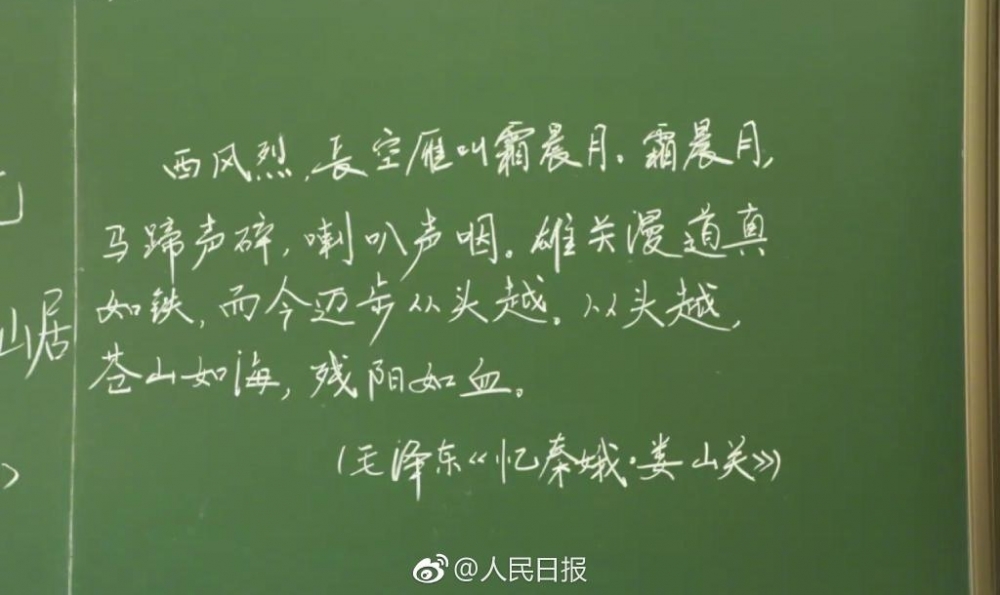 西风烈,长空雁叫霜晨月。霜晨月,
马蹄声碎,喇叭声咽。雄关漫道真
如铁,而今迈步从头越。从头越,
苍山如海,残阳如血。
(毛泽东《忆秦娥·娄山关》)
山居
@人民日报